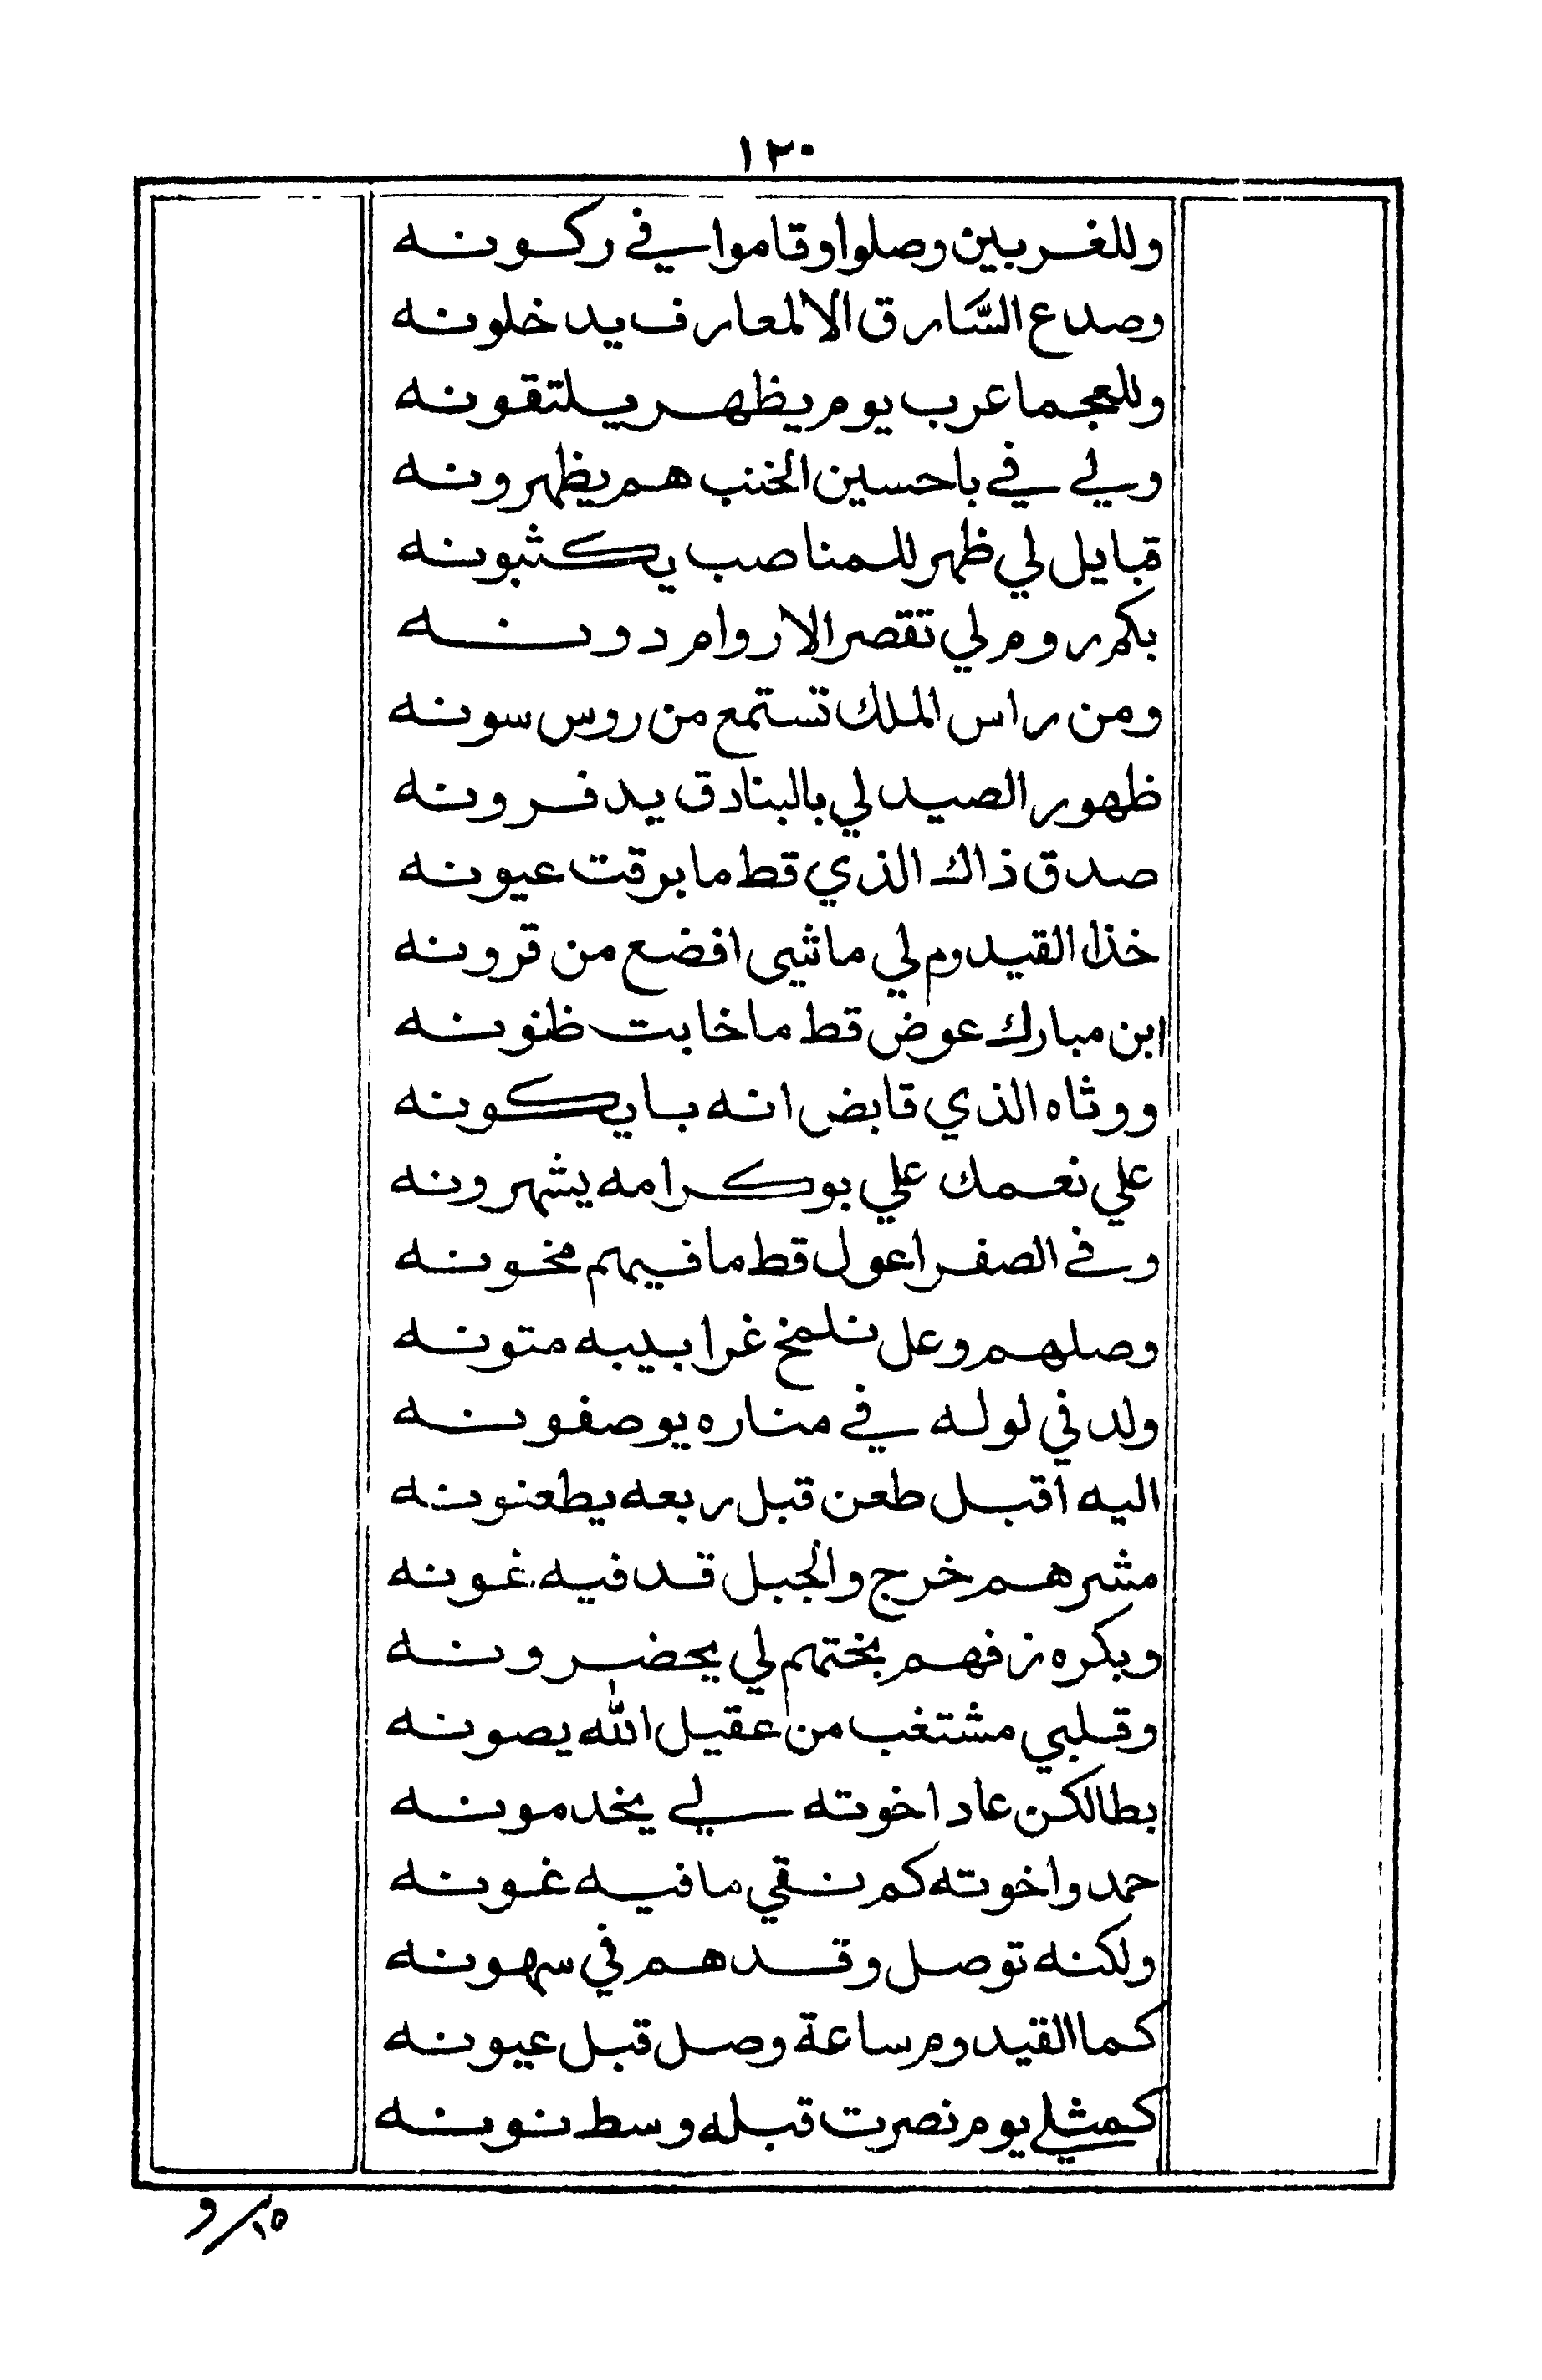 ١٢٠
وللغربين وصلوا وقاموا في ركونه
وصدع السَّارق الا لمعارف يدخلونه
وللعجما عرب يوم يظهر يلتقونه
ولي في باحسين الخنب هم يظهرونه
قبايل لي ظهر للمناصب يكثبونه
بكم روم لي تقصر الاروام دونه
ومن راس الملك تستمع من روس سونه
ظهور الصيد لي بالبنادق يدفرونه
صدق ذاك الذي قط ما برقت عيونه
خذا القيدوم لي ماشيى افضع من قرونه
ابن مبارك عوض قط ما خابت ظنونه
ووثاه الذي قابض انه بايكونه
علي نعمك علي بوكرامه يشهرونه
وفي الصفرا عول قط ما فيهم مخونه
وصلهم وعل نلمخ غرابيبه متونه
ولد في لوله في مناره يوصفونه
اليه اقبل طعن قبل ربعه يطعنونه
مشرهم خرج والجبل قد فيه غونه
وبكره زفهم بختهم لي يحضرونه
وقلبي مشتغب من عقيل الله يصونه
بطالكن عاد اخوته لي يخدمونه
حمد واخوته كم نقي ما فيه غونه
ولكنه توصل وقد هم في سهونه
كما القيدوم ساعة وصل قبل عيونه
كمثلي يوم نصرت قبله وسط نونه